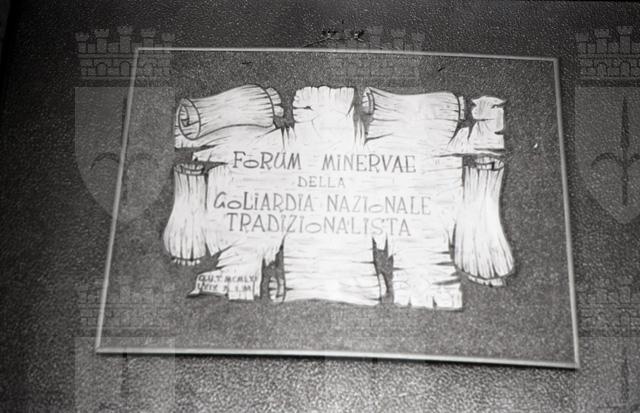 FORUM MINERVAE
DELLA
GOLIARDIA NAZIONALE
TRADIZIONALISTA
O.U.T. MCMLXI